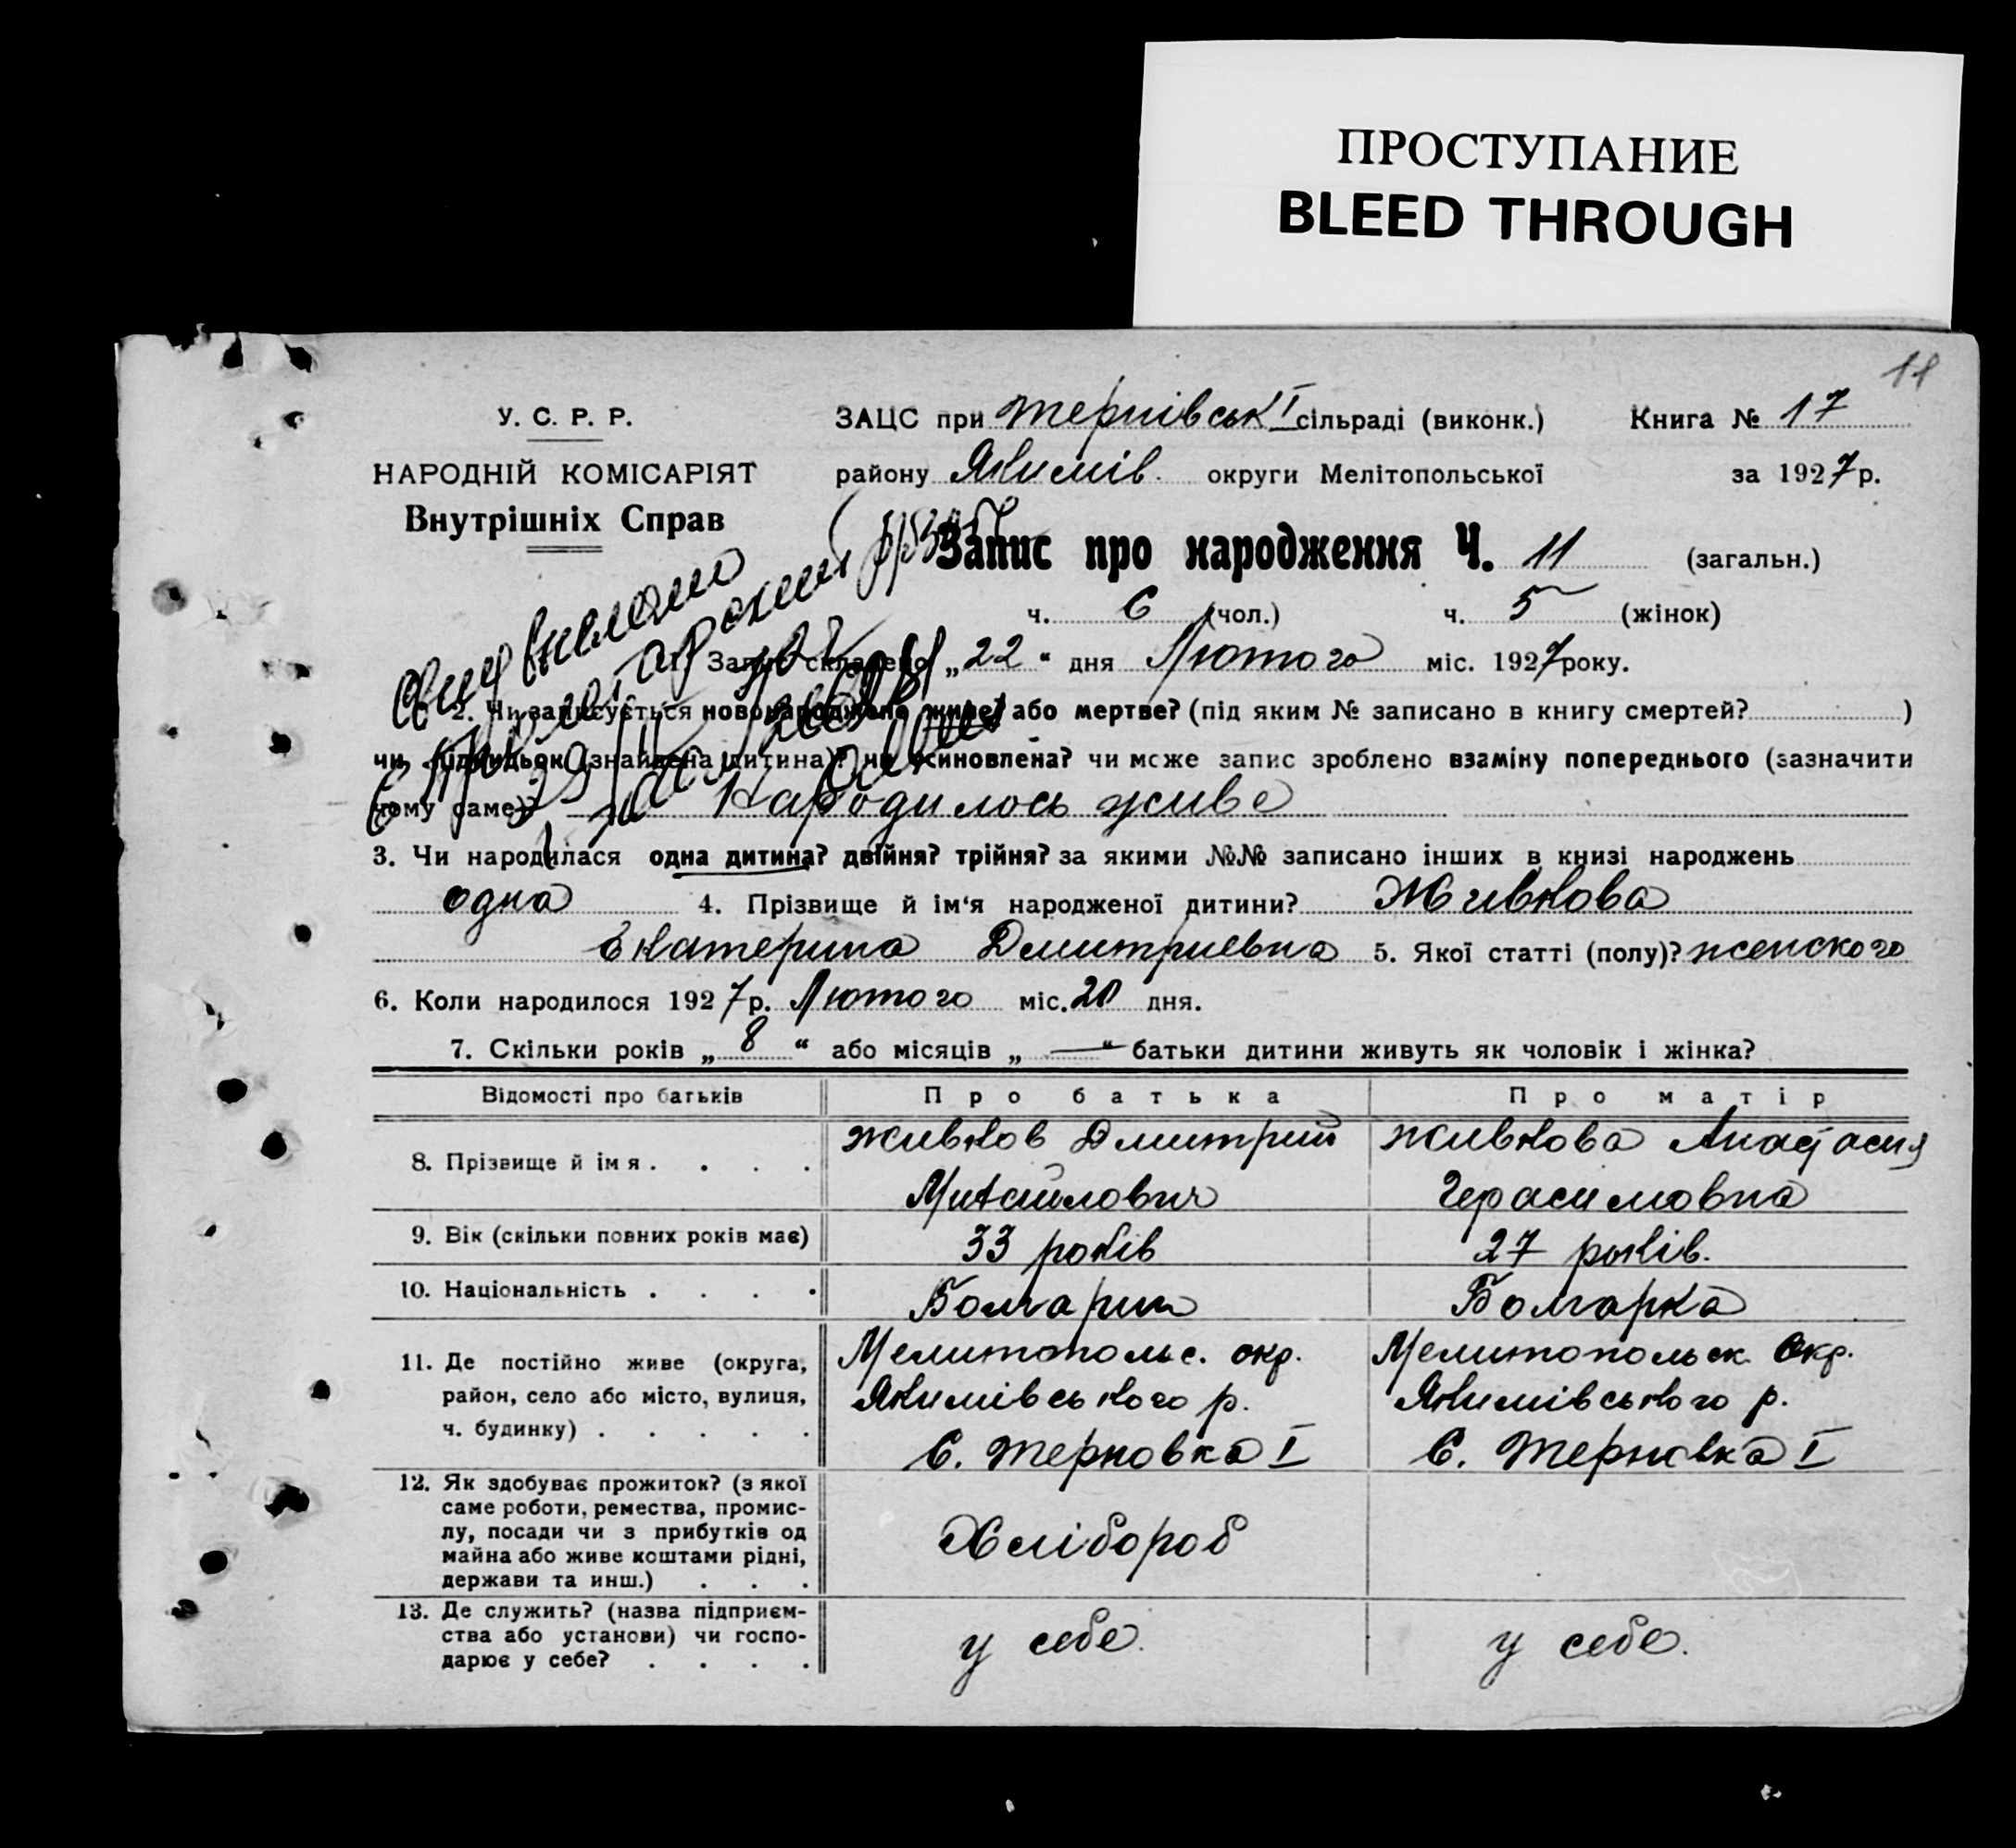 ПРОСТУПАНИЕ
BLEED THROUGH
11
У. С. Р. Р.
НАРОДНІЙ КОМІСАРІЯТ
Внутрішніх Справ
ЗАЦС при Тернівськ I сільраді (виконк.)
Книга № 17
району Якимів. округи Мелітопольської
за 1927 р.
Запис про народження Ч. 11 (загальн.)
ч. 6 (чол.) ч. 5 (жінок)
1. Запис складено „22“ дня Лютого міс. 1927 року.
2. Чи записується новонароджене живе? або мертве? (під яким № записано в книгу смертей? )
чи підкидьок (знайдена дитина)? чи усиновлена? чи може запис зроблено взаміну попереднього (зазначити
чому саме)? Народилось живе
3. Чи народилася одна дитина? двійня? трійня? за якими №№ записано інших в книзі народжень
одна 4. Прізвище й ім‘я народженої дитини? Живкова
Екатерина Дмитриевна 5. Якої статті (полу)? женского
6. Коли народилося 1927 р. Лютого міс. 20 дня.
7. Скільки років „ 8 “ або місяців „ — “ батьки дитини живуть як чоловік і жінка?
Відомості про батьків Про батька Про матір
8. Прізвище й імя . . . . Живков Дмитрий Живкова Анастасия
Михайлович Герасимовна
9. Вік (скільки повних років має) 33 років 27 років.
10. Національність . . . . Болгарин Болгарка
11. Де постійно живе (округа, Мелитопольс. окр. Мелитопольск. Окр.
район, село або місто, вулиця, Якимівського р. Якимівського р.
ч. будинку) . . . . . С. Терновка I С. Терновка I
12. Як здобуває прожиток? (з якої
саме роботи, ремества, промис-
лу, посади чи з прибутків од Хлібороб
майна або живе коштами рідні,
держави та инш.) . . .
13. Де служить? (назва підприєм-
ства або установи) чи госпо- у себе. у себе.
дарює у себе? . . . .